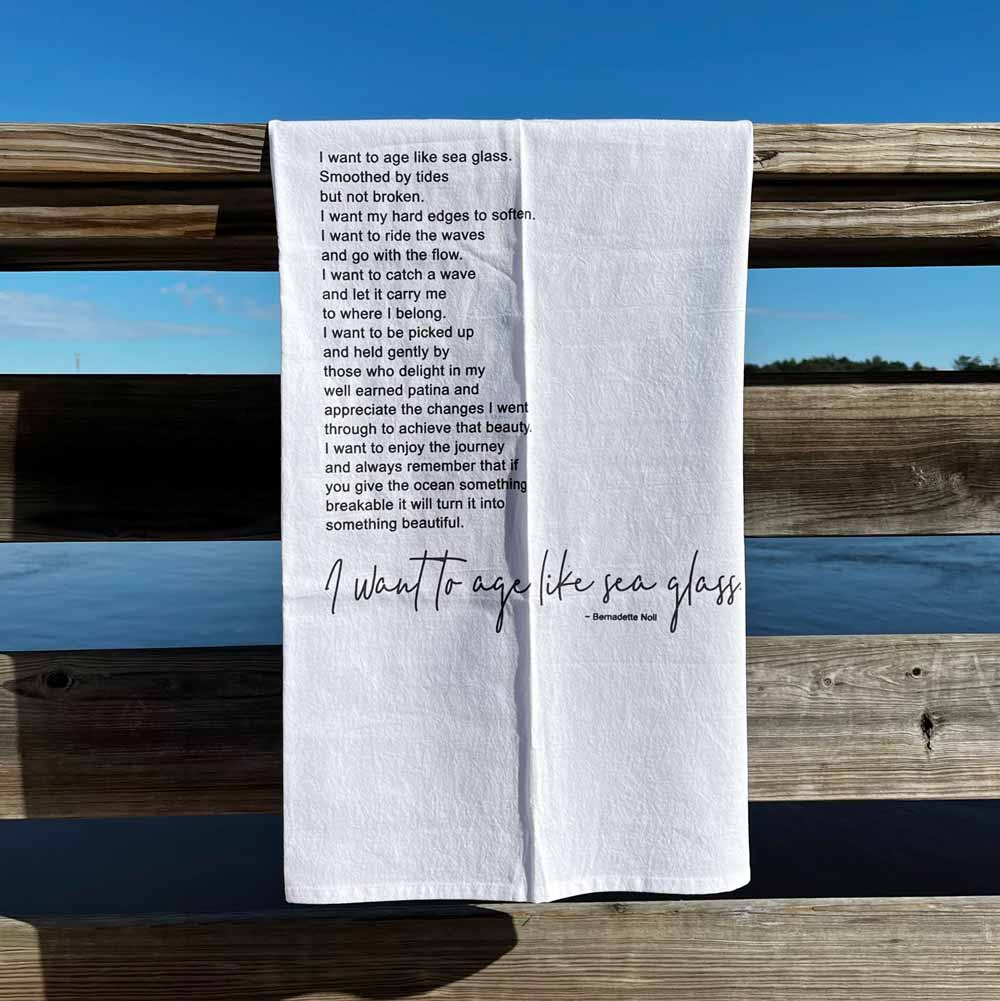 I want to age like sea glass.
Smoothed by tides
but not broken.
I want my hard edges to soften.
I want to ride the waves
and go with the flow.
I want to catch a wave
and let it carry me
to where I belong.
I want to be picked up
and held gently by
those who delight in my
well earned patina and
appreciate the changes I went
through to achieve that beauty.
I want to enjoy the journey
and always remember that if
you give the ocean something
breakable it will turn it into
something beautiful.
I want to age like sea glass.
~ Bernadette Noll